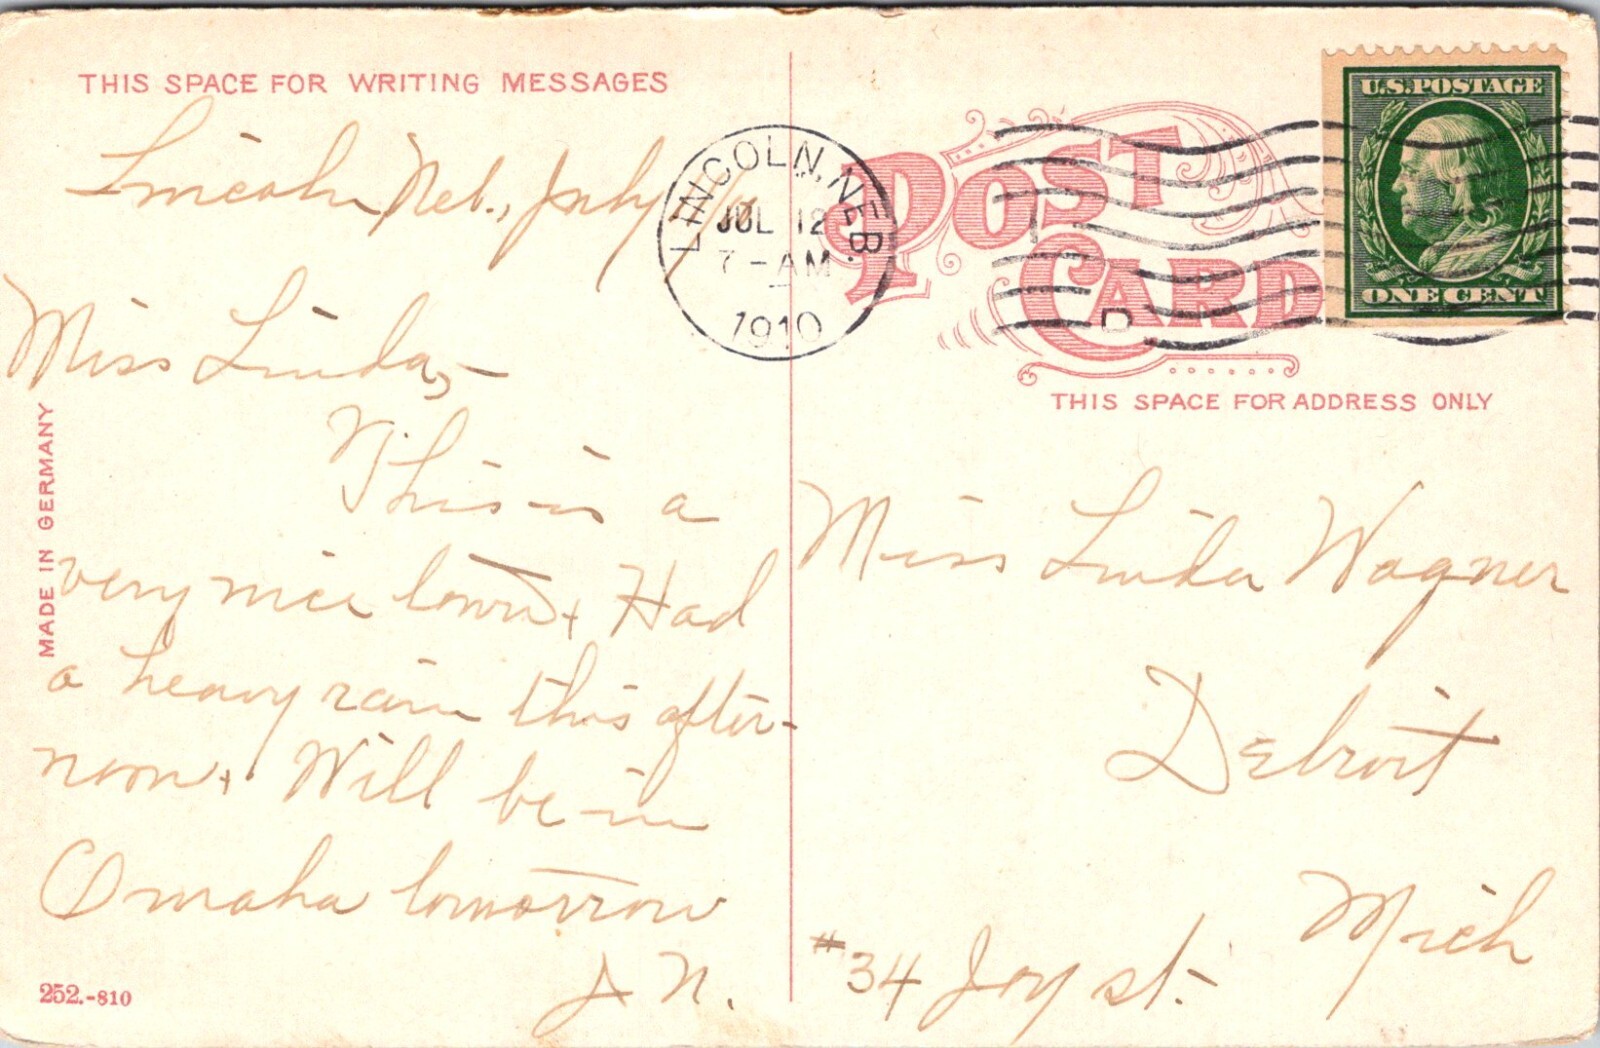 THIS SPACE FOR WRITING MESSAGES
Lincoln Neb., July
Miss Linda,-
This is a
very nice town + Had
a heavy rain this after-
noon +. Will be in
Omaha tomorrow
J N.
MADE IN GERMANY
252.-810
LINCOLN, NEB.
JUL 12
7-AM
1910
D
POST
CARD
THIS SPACE FOR ADDRESS ONLY
U.S.POSTAGE
ONE CENT
Miss Linda Wagner
Detroit
Mich
#34 Joy st.-